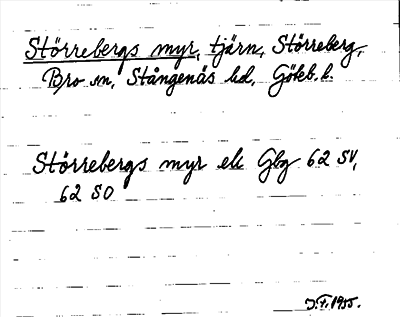 Störrebergs myr, tjärn, Störreberg,
Bro sn, Stångenäs hd, Göteb. l.
Störrebergs myr ek Gbg 62 SV,
62 SO
J.F. 1955.